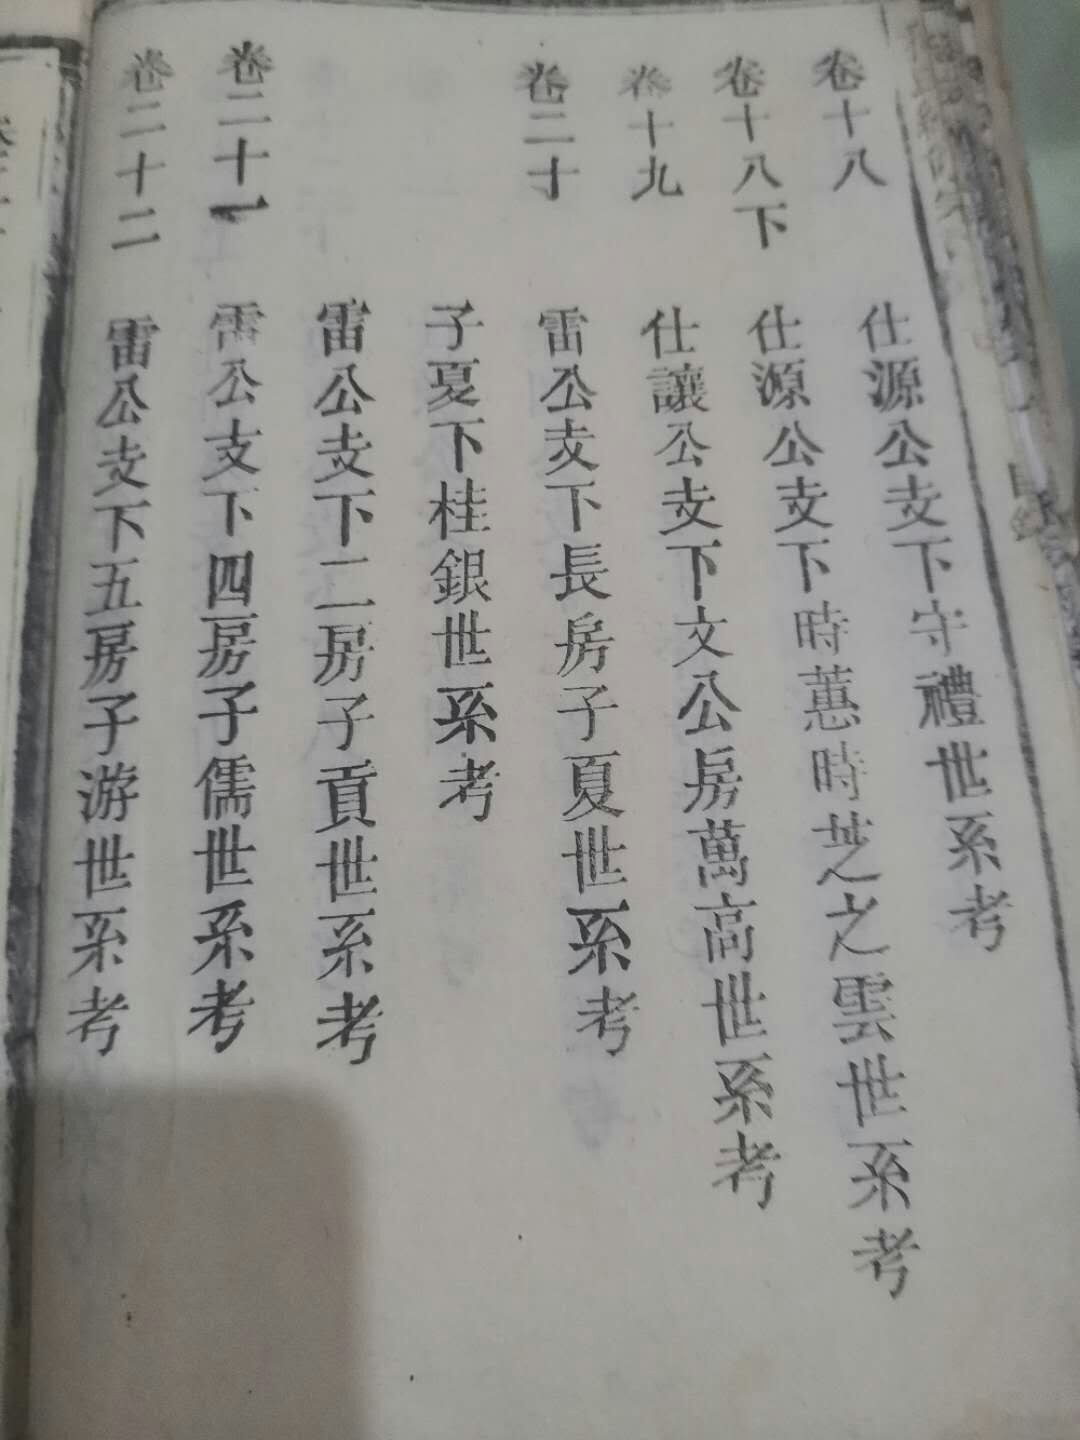 卷十八　仕源公支下守禮世系考
卷十八下　仕源公支下時蕙時芝之雲世系考
卷十九　仕讓公支下文公房萬高世系考
卷二十　雷公支下長房子夏世系考
子夏下桂銀世系考
雷公支下二房子貢世系考
卷二十一　雷公支下四房子儒世系考
卷二十二　雷公支下五房子游世系考